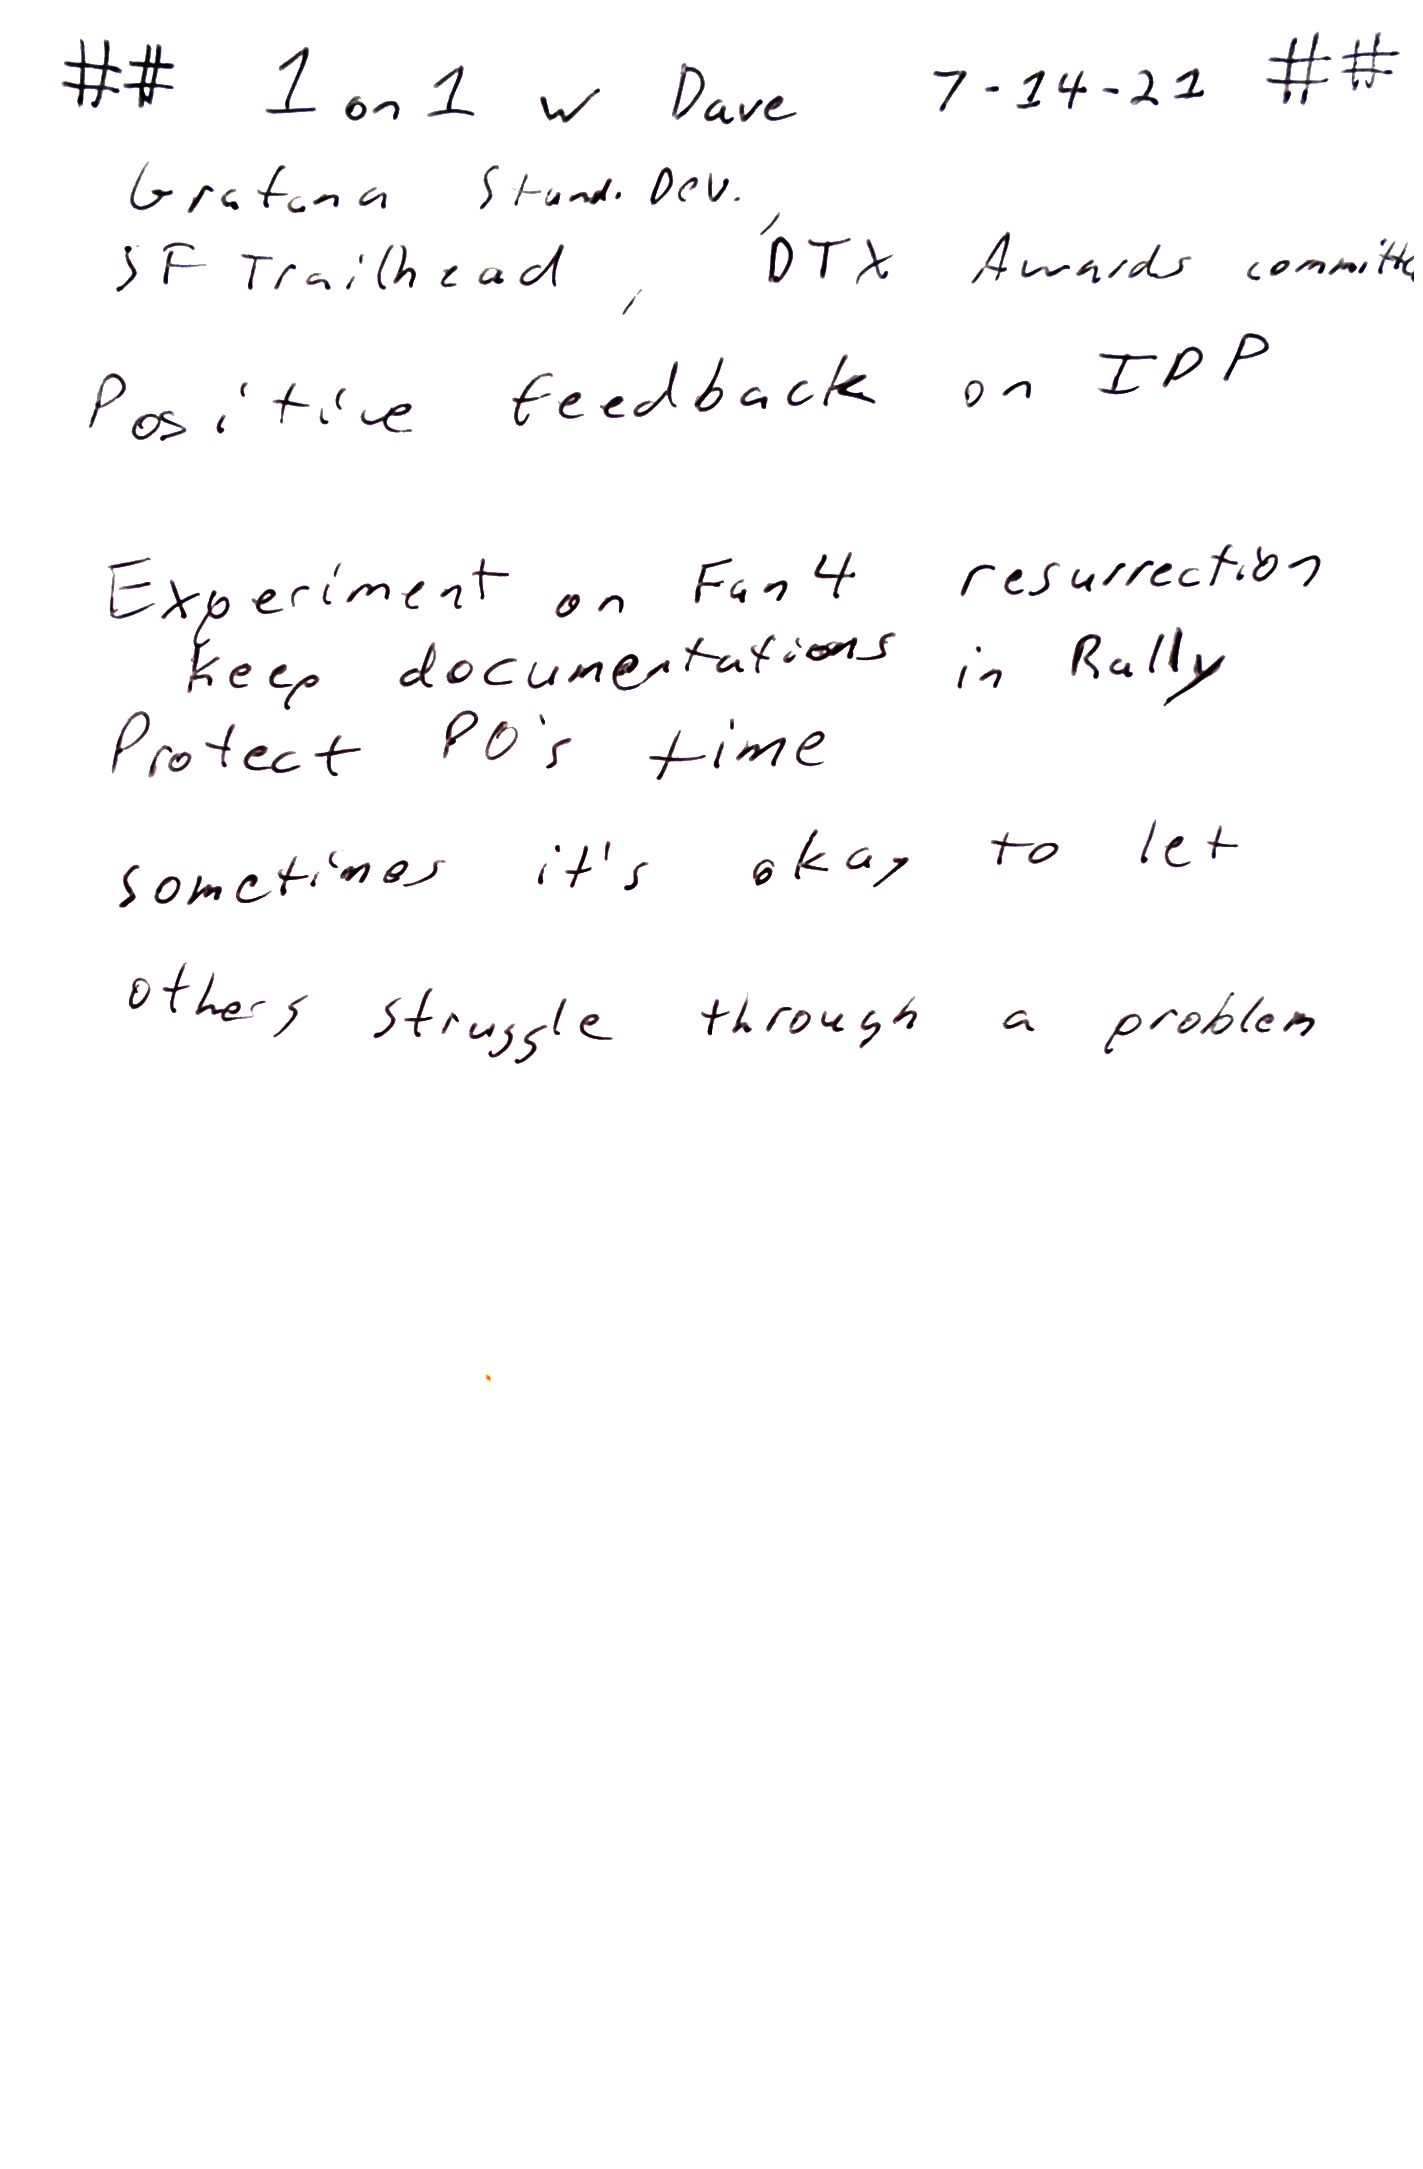 ## 1 on 1 w Dave 7-14-21 ##
Grafana Stand. Dev.,
SF Trailhead, DTX Awards committe
Positive feedback on IDP
Experiment on Fan4 resurrection
keep documentations in Rally
Protect PO's time
sometimes it's okay to let
others struggle through a problem